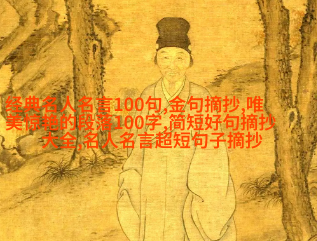 经典名人名言100句,金句摘抄,唯
美惊艳的段落100字,简短好句摘抄
大全,名人名言超短句子摘抄